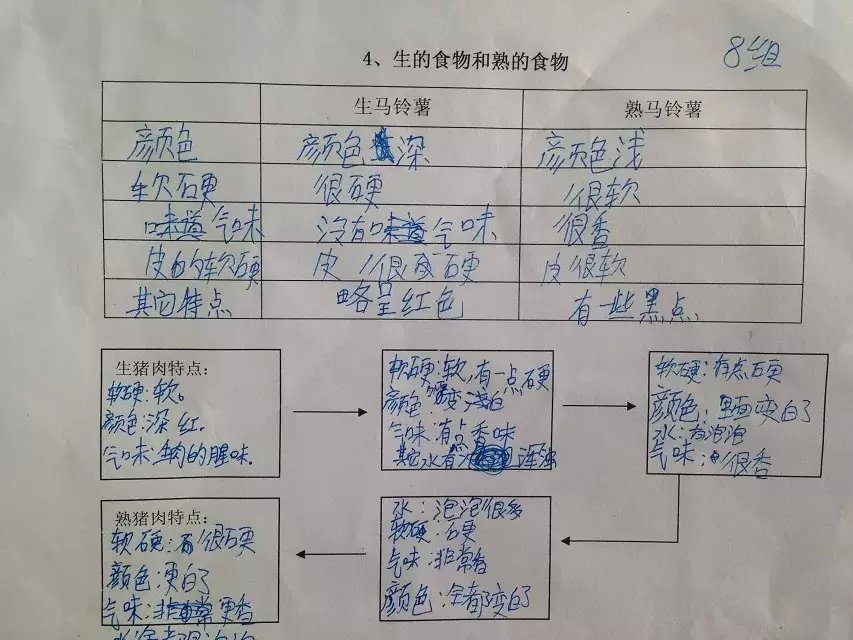 4、生的食物和熟的食物
8组
生马铃薯 熟马铃薯
颜色 颜色深 颜色浅
软硬 很硬 很软
气味 没有气味 很香
皮的软硬 皮很硬 皮很软
其它特点 略呈红色 有一些黑点
生猪肉特点：
软硬：软。
颜色：深红.
气味：生肉的腥味.
软硬：软,有一点硬
颜色：变浅白
气味：有点香味
其它水有 浑浊
软硬：有点硬
颜色：里面变白了
水：有泡泡
气味：很香
水：泡泡很多
软硬：硬
气味：非常香
颜色：全都变白了
熟猪肉特点：
软硬：很硬
颜色：更白了
气味：更香